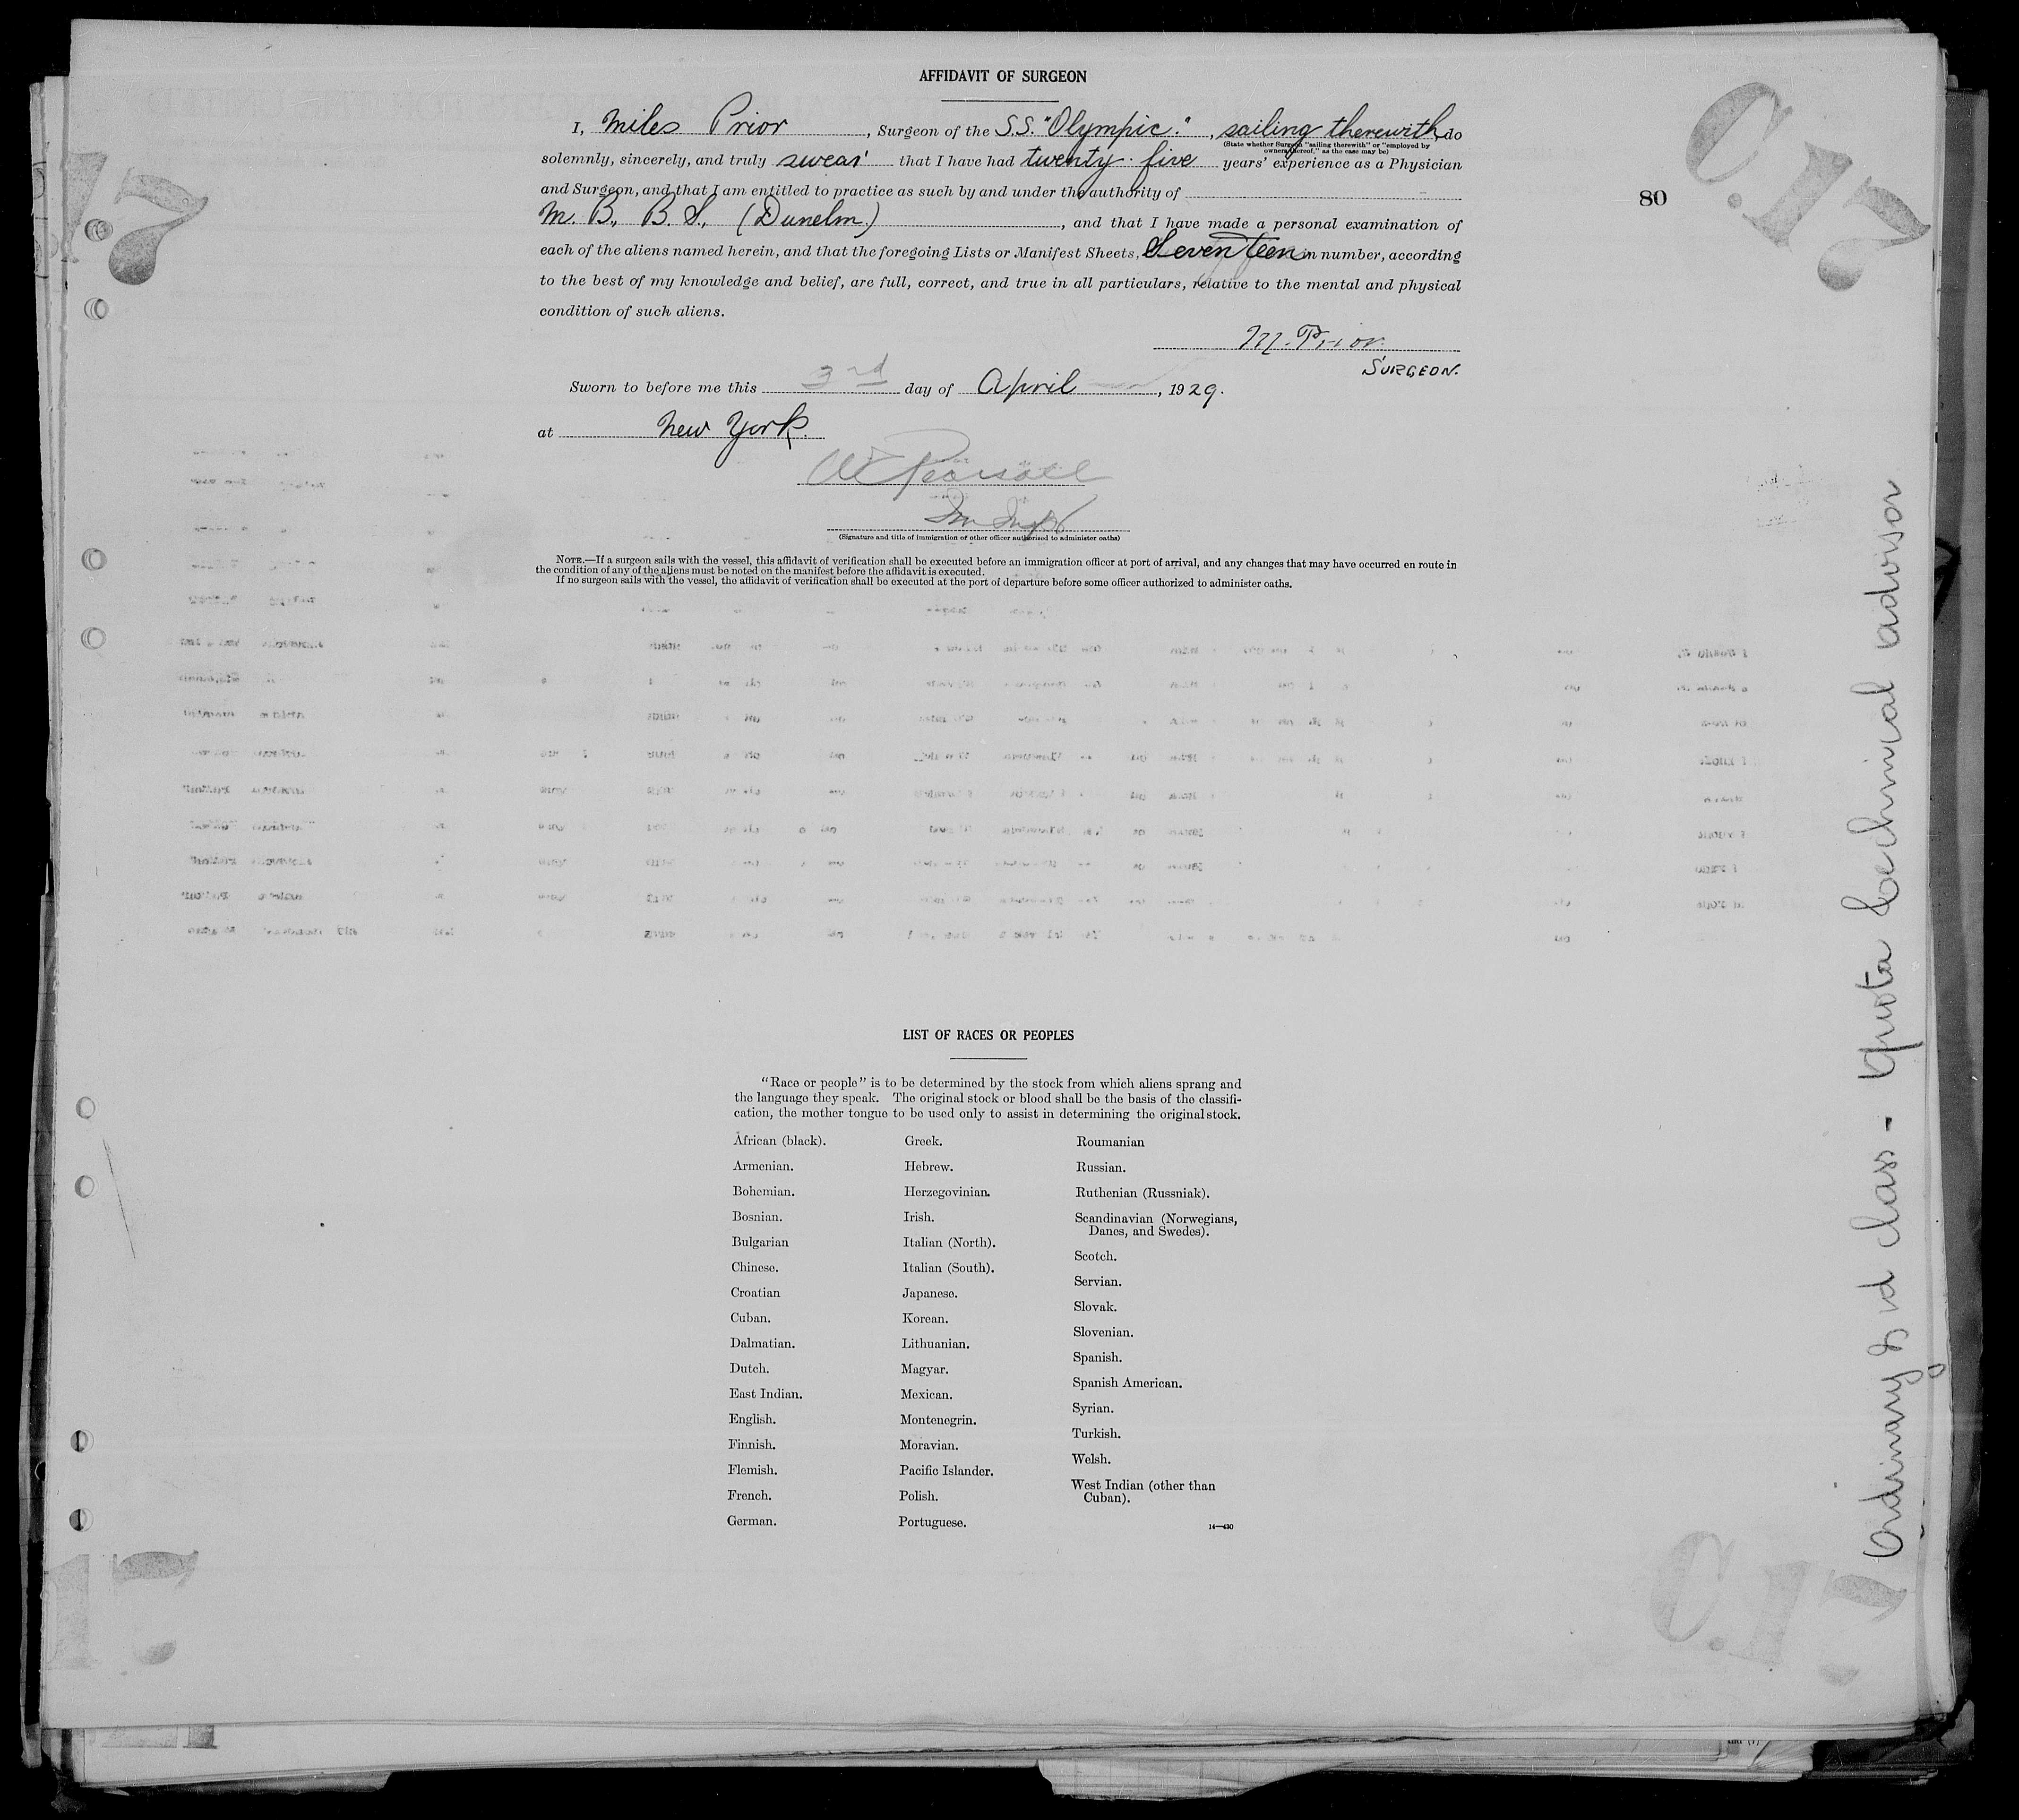 AFFIDAVIT OF SURGEON
I, Miles Prior, Surgeon of the S.S. "Olympic.", sailing therewith, do
(State whether Surgeon "sailing therewith" or "employed by
owners thereof," as the case may be)
solemnly, sincerely, and truly swear that I have had twenty-five years' experience as a Physician
and Surgeon, and that I am entitled to practice as such by and under the authority of
M. B., B. S., (Dunelm.), and that I have made a personal examination of
each of the aliens named herein, and that the foregoing Lists or Manifest Sheets, Seventeen in number, according
to the best of my knowledge and belief, are full, correct, and true in all particulars, relative to the mental and physical
condition of such aliens.
M. Prior.
SURGEON.
Sworn to before me this 3rd day of April, 1929.
at New York.
(Signature and title of immigration or other officer authorised to administer oaths)
NOTE.—If a surgeon sails with the vessel, this affidavit of verification shall be executed before an immigration officer at port of arrival, and any changes that may have occurred en route in
the condition of any of the aliens must be noted on the manifest before the affidavit is executed.
If no surgeon sails with the vessel, the affidavit of verification shall be executed at the port of departure before some officer authorized to administer oaths.
80
C.17
17
LIST OF RACES OR PEOPLES
"Race or people" is to be determined by the stock from which aliens sprang and
the language they speak. The original stock or blood shall be the basis of the classifi-
cation, the mother tongue to be used only to assist in determining the original stock.
African (black).
Armenian.
Bohemian.
Bosnian.
Bulgarian
Chinese.
Croatian
Cuban.
Dalmatian.
Dutch.
East Indian.
English.
Finnish.
Flemish.
French.
German.
Greek.
Hebrew.
Herzegovinian.
Irish.
Italian (North).
Italian (South).
Japanese.
Korean.
Lithuanian.
Magyar.
Mexican.
Montenegrin.
Moravian.
Pacific Islander.
Polish.
Portuguese.
Roumanian
Russian.
Ruthenian (Russniak).
Scandinavian (Norwegians,
Danes, and Swedes).
Scotch.
Servian.
Slovak.
Slovenian.
Spanish.
Spanish American.
Syrian.
Turkish.
Welsh.
West Indian (other than
Cuban).
14—430
class - quota technical advisor
17
C.17